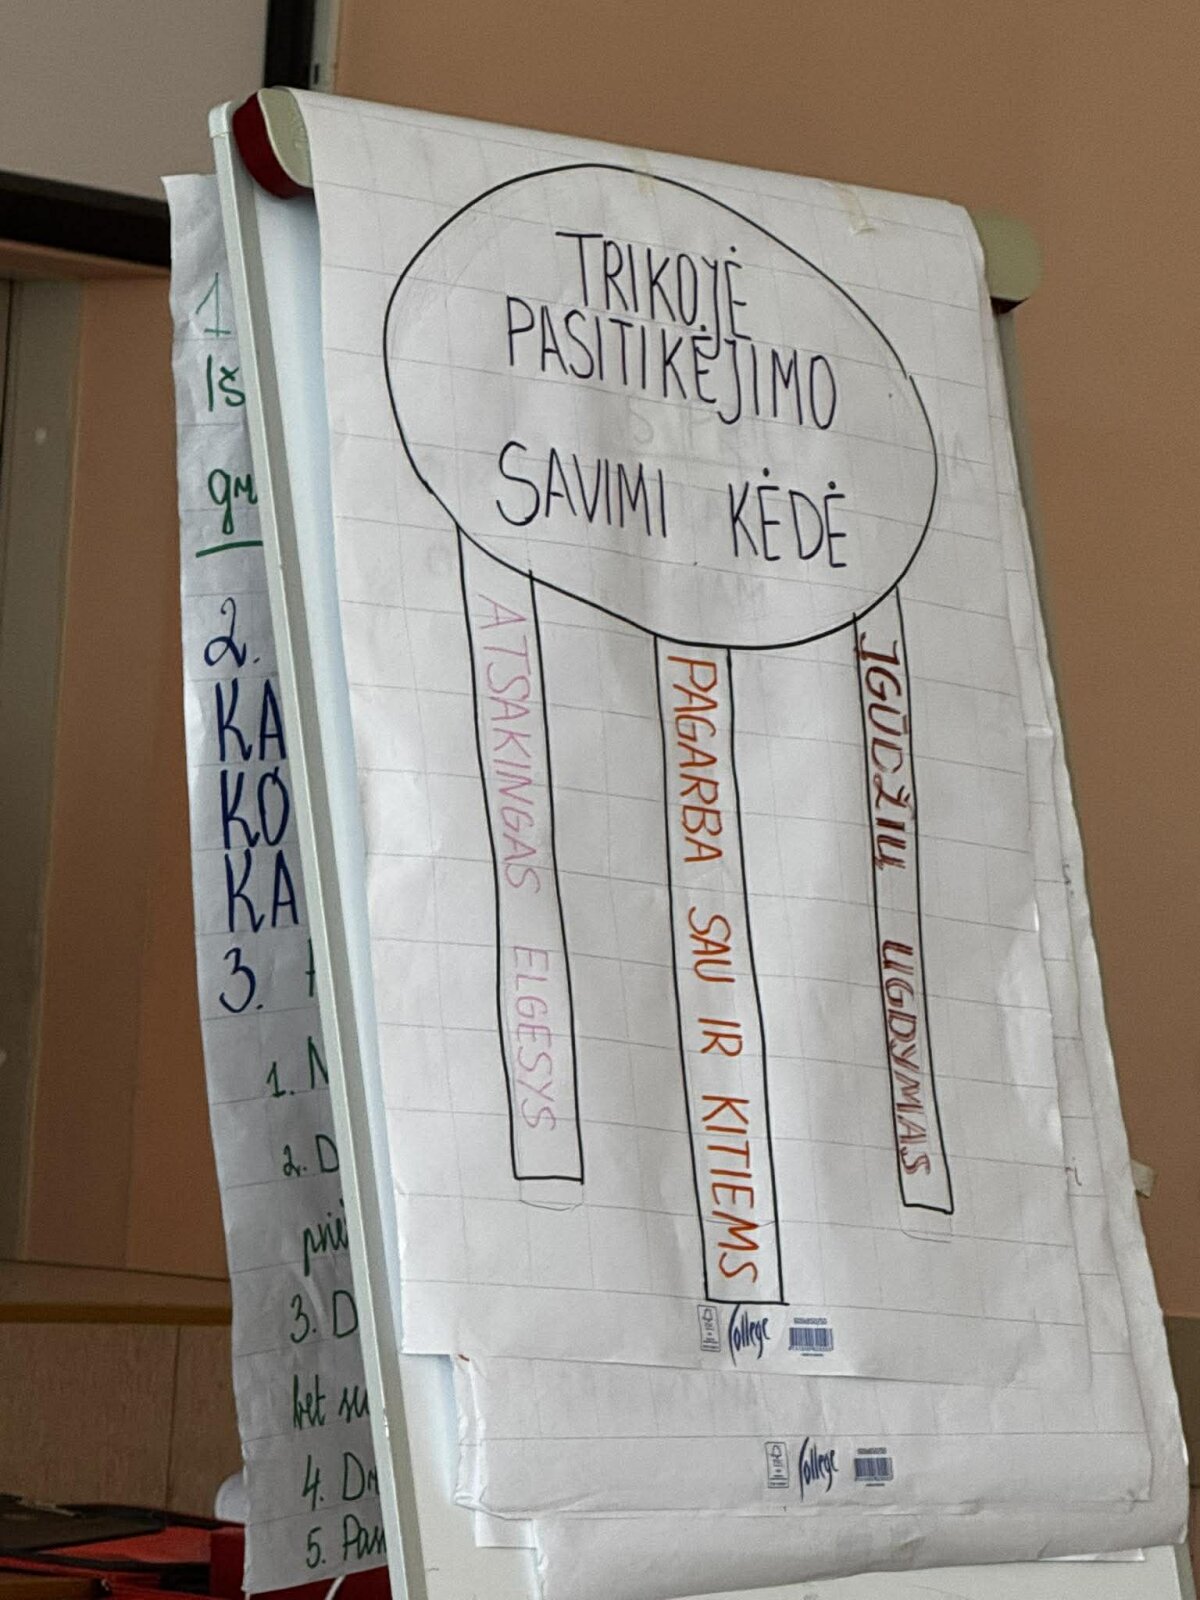 TRIKOJĖ
PASITIKĖJIMO
SAVIMI KĖDĖ
ATSAKINGAS ELGESYS
PAGARBA SAU IR KITIEMS
ĮGŪDŽIŲ UGDYMAS
College
College
1
IŠ
2.
KA
KO
KA
3.
1. N
2. D
3. D
bet su
4. Dr
5.